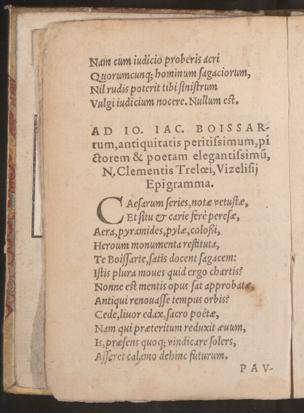 Nam cum iudicio proberis acri
Quorumcunq; hominum sagaciorum,
Nil rudis poterit tibi sinistrum
Vulgi iudicium nocere. Nullum est.
AD IO. IAC. BOISSAR-
tum, antiquitatis peritissimum, pi
ctorem & poetam elegantissimũ,
N, Clementis Treloei, Vizelisij
Epigramma.
CAesarum series, notæ vetustæ,
Et situ & carie ferè peresæ,
Aera, pyramides, pylæ, colossi,
Heroum monumenta restituta,
Te Boissarte, satis docent sagacem:
Istis plura moues quid ergo chartis?
Nonne est mentis opus sat approbatæ,
Antiqui renouasse tempus orbis?
Cede, liuor edax, sacro poëtæ,
Nam qui præteritum reduxit æuum,
Is, præsens quoq; vindicare solers,
Asseret calamo dehinc futurum.
PAV-